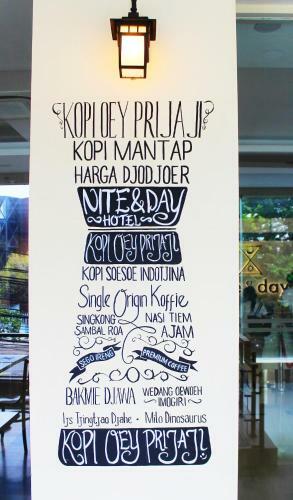 KOPI OEY PRIJAJI
KOPI MANTAP
HARGA DJODJOER
NITE & DAY
HOTEL
KOPI OEY PRIJAJI
KOPI SOESOE INDOTJINA
Single Origin Koffie
SINGKONG NASI TIEM
SAMBAL ROA AJAM
SEGO IRENG PREMIUM COFFEE
BAKMIE DJAWA WEDANG OEWOEH
IMOGIRI
Ijs Tjingtjao Djahe · Milo Dinosaurus
KOPI OEY PRIJAJI
& day